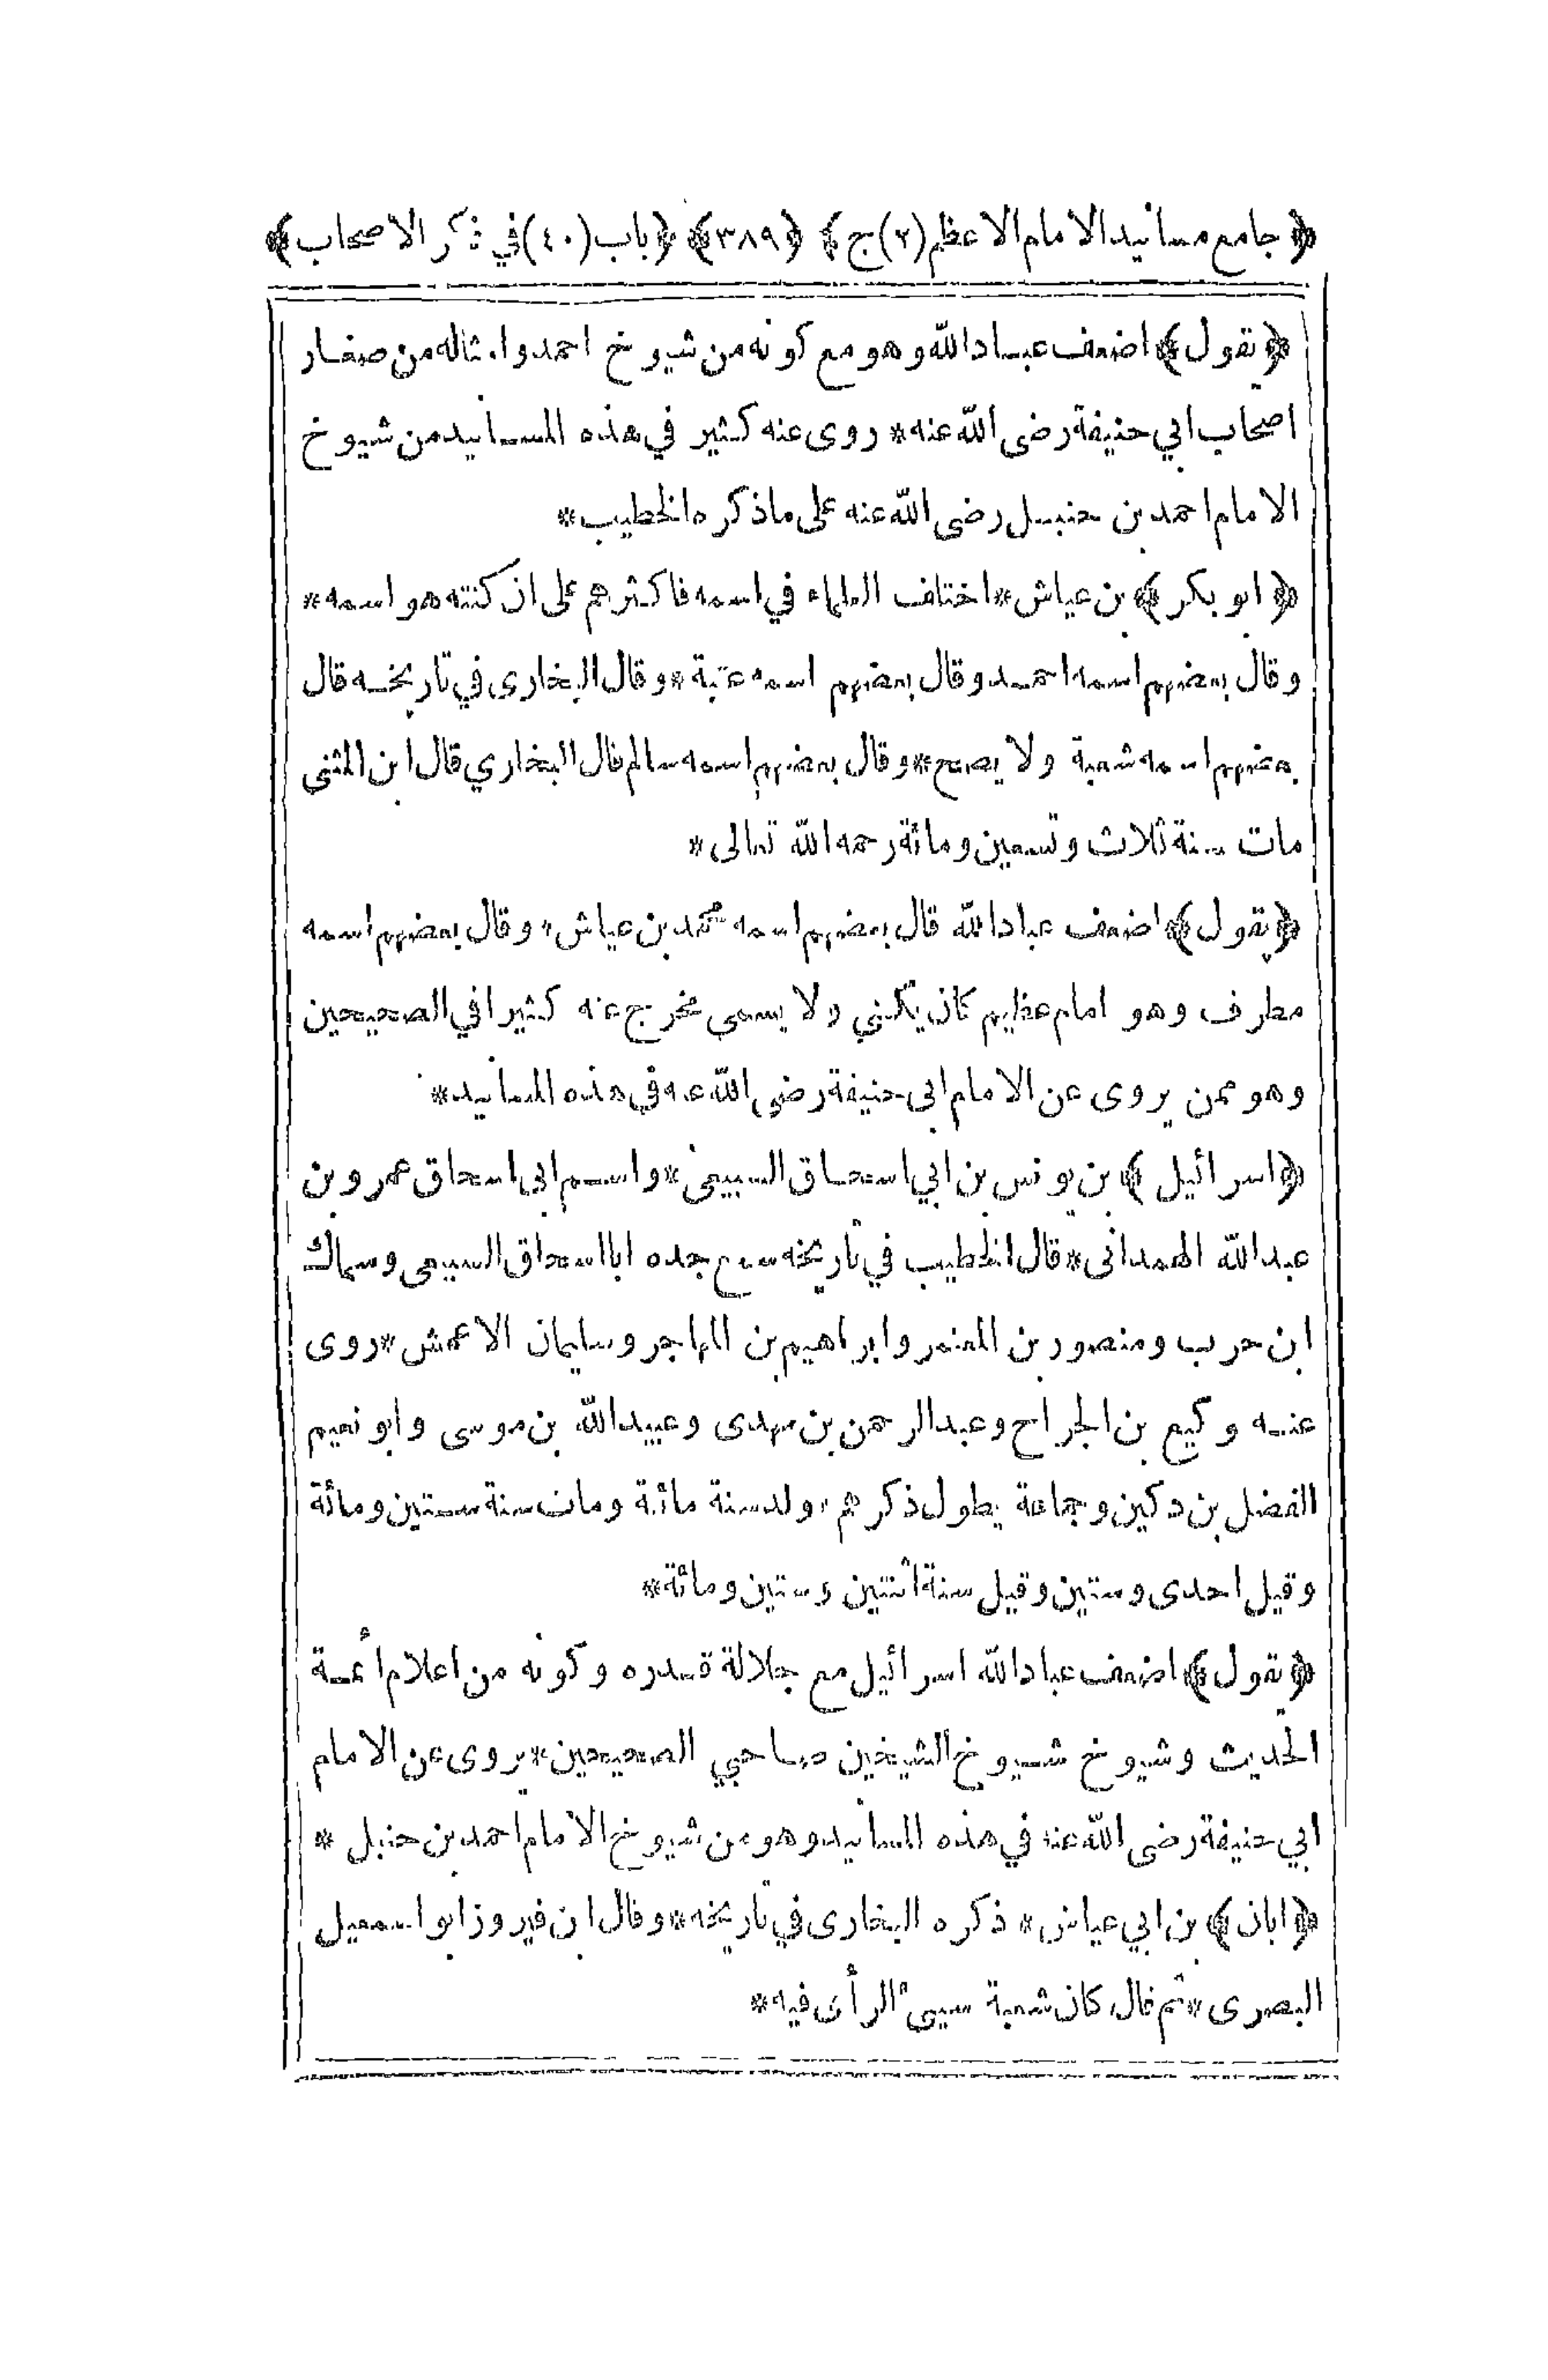 ﴿ جامع مسانيد الامام الاعظم (٢) ج ﴾ ﴿ ٣٨٩ ﴾ ﴿ باب (٤٠) في ذكر الاصحاب ﴾
﴿ يقول ﴾ اضعف عباد الله وهو مع كونه من شيوخ احمد وامثاله من صغار
اصحاب ابي حنيفة رضى الله عنه * روى عنه كثير في هذه المسانيد من شيوخ
الامام احمد بن حنبل رضى الله عنه على ما ذكره الخطيب *
﴿ ابو بكر ﴾ بن عياش * اختلف العلماء في اسمه فاكثرهم على ان كنته هو اسمه *
وقال بعضهم اسمه احمد وقال بعضهم اسمه عتبة * وقال البخارى في تاريخه قال
بعضهم اسمه شعبة ولا يصح * وقال بعضهم اسمه سالم قال البخاري قال ابن المثنى
مات سنة ثلاث وتسعين ومائة رحمه الله تعالى *
﴿ يقول ﴾ اضعف عباد الله قال بعضهم اسمه محمد بن عياش * وقال بعضهم اسمه
مطرف وهو امام عظيم كان يكنى ولا يسمى مخرج عنه كثيرا في الصحيحين
وهو ممن يروى عن الامام ابى حنيفة رضي الله عنه في هذه المسانيد *
﴿ اسرائيل ﴾ بن يونس بن ابي اسحاق السبيعى * واسم ابى اسحاق عمرو بن
عبد الله الهمدانى * قال الخطيب في تاريخه سمع جده ابا اسحاق السبيعى وسماك
ابن حرب ومنصور بن المعتمر وابراهيم بن المهاجر وسليمان الاعمش * روى
عنه وكيع بن الجراح وعبد الرحمن بن مهدى وعبيد الله بن موسى وابو نعيم
الفضل بن دكين وجماعة يطول ذكرهم * ولد سنة مائة ومات سنة ستين ومائة
وقيل احدى وستين وقيل سنة اثنتين وستين ومائة *
﴿ يقول ﴾ اضعف عباد الله اسرائيل مع جلالة قدره وكونه من اعلام أئمة
الحديث وشيوخ شيوخ الشيخين صاحبي الصحيحين * يروى عن الامام
ابي حنيفة رضى الله عنه في هذه المسانيد وهو من شيوخ الامام احمد بن حنبل *
﴿ ابان ﴾ بن ابي عياش * ذكره البخارى في تاريخه * وقال ابن فيروز ابو اسمعيل
البصرى * ثم قال كان شعبة سيئ الرأى فيه *